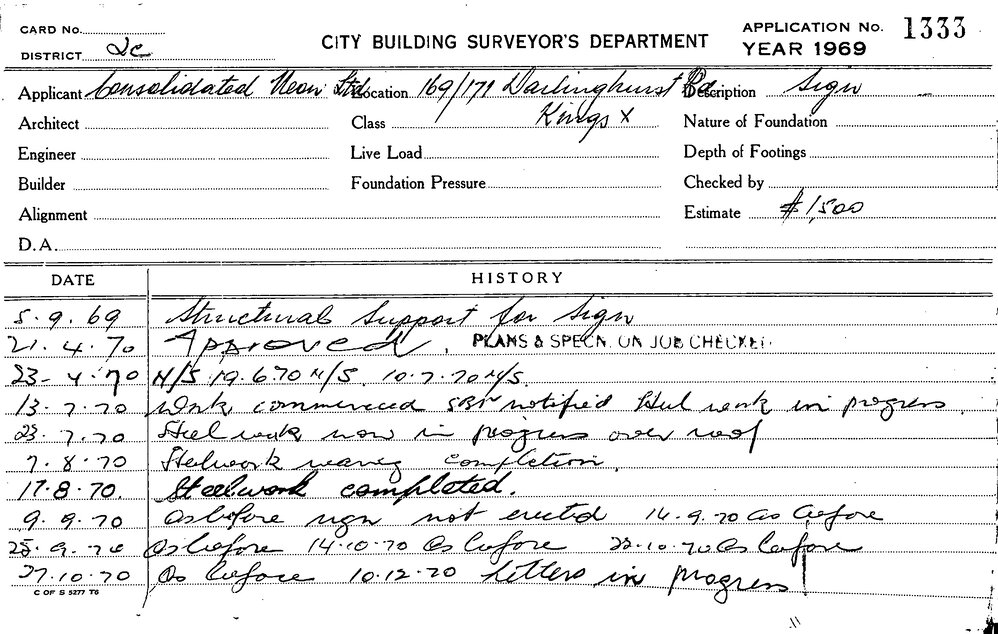 CARD No.
DISTRICT 2c
CITY BUILDING SURVEYOR'S DEPARTMENT
APPLICATION No. 1333
YEAR 1969
Applicant Consolidated Neon Ltd. Location 169/171 Darlinghurst Rd Description Sign
Kings X
Architect Class Nature of Foundation
Engineer Live Load Depth of Footings
Builder Foundation Pressure Checked by
Alignment Estimate $1,500
D.A.
DATE HISTORY
5.9.69 Structural Support for Sign
21.4.70 Approved. PLANS & SPECN. ON JOB CHECKED.
23-4.70 N/S 19.6.70 N/S. 10.7.70 N/S.
13.7.70 Work commenced notified Steel work in progress.
23.7.70 Steel work now in progress over roof
7.8.70 Steelwork nearing completion.
17.8.70. Steelwork completed.
9.9.70 As before sign not erected 14.9.70 As before
25.9.70 As before 14.10.70 As before 22.10.70 As before
27.10.70 As before 10.12.70 Letters in progress
C OF S 5277 T6